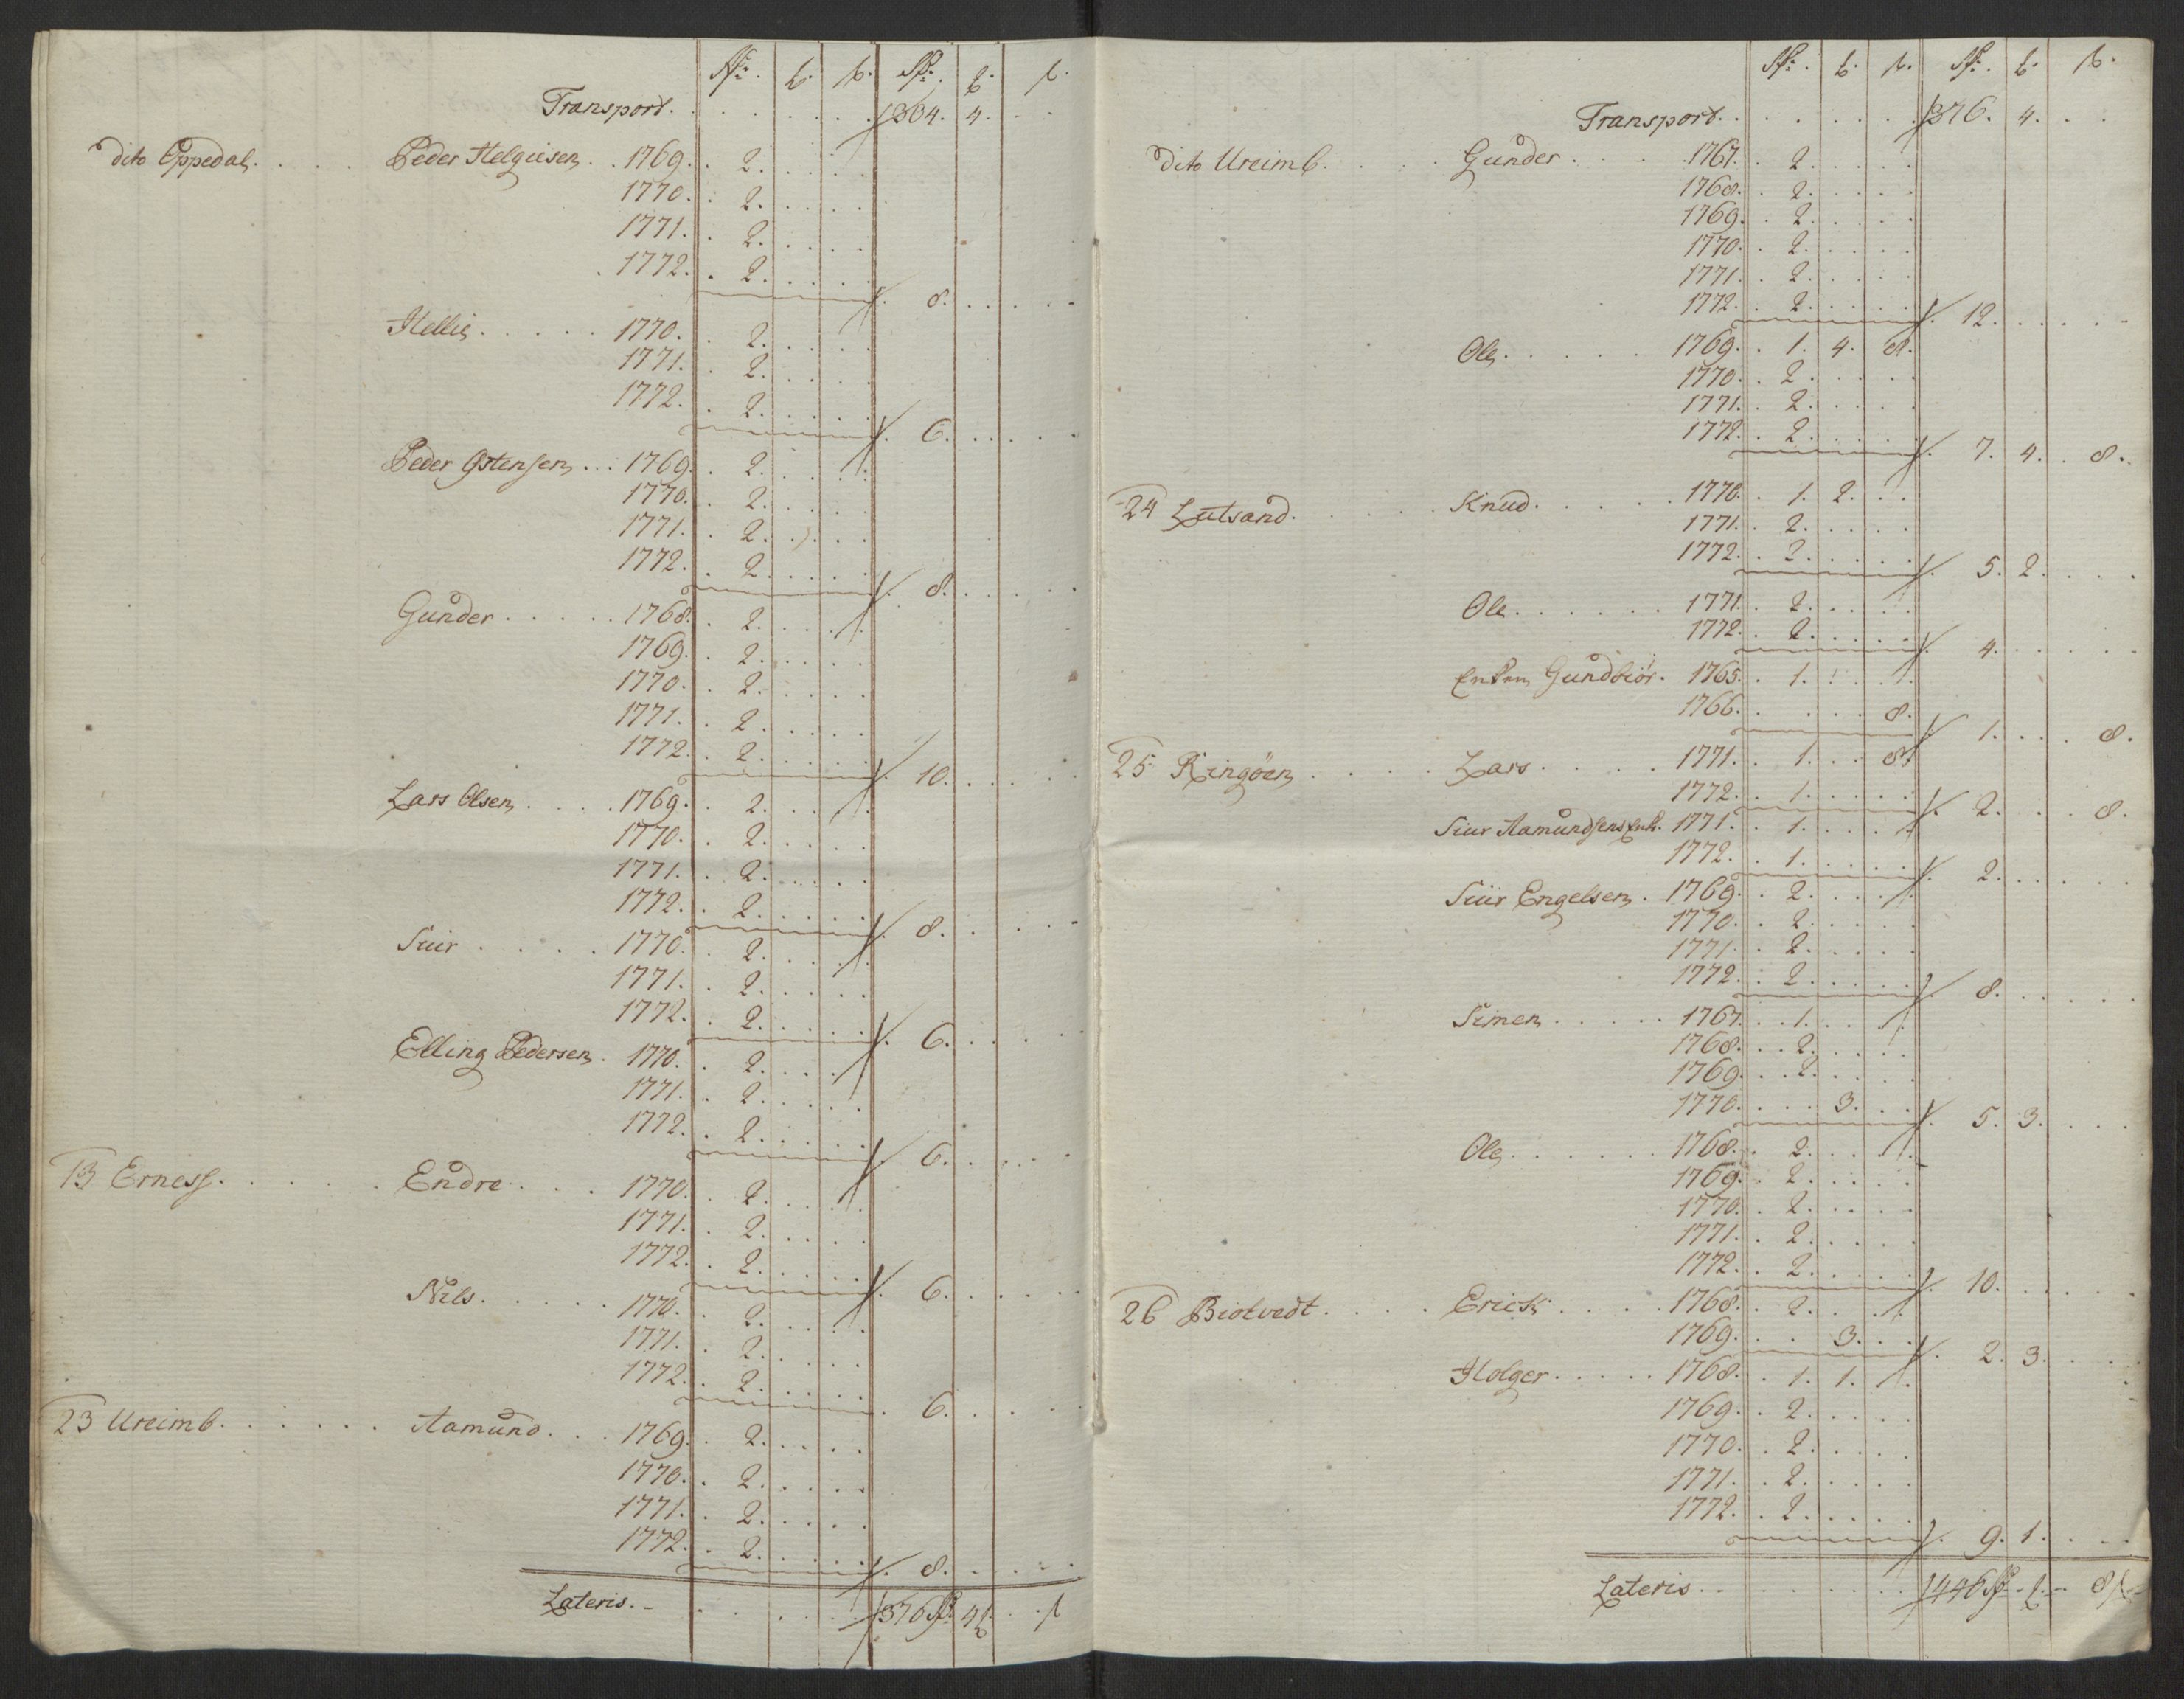 Rdr. ß. ß. Rdr. ß. ß.
Transport. . . . . . . 304. 4. . .
dito Oppedal. . . . Peder Helgiesen . . 1769. . 2. . . .
1770. . 2. . . .
1771. . 2. . . .
1772. . 2. . . . 8. . . . .
Hellie. . . . . 1770. . 2. . . .
1771. . 2. . . .
1772. . 2. . . . 6. . . . .
Peder Ostensen . . . 1769. . 2. . . .
1770. . 2. . . .
1771. . 2. . . .
1772. . 2. . . . 8. . . . .
Gunder . . . . . 1768. . 2. . . .
1769. . 2. . . .
1770. . 2. . . .
1771. . 2. . . .
1772. . 2. . . . 10. . . . .
Lars Olsen . . . . 1769. . 2. . . .
1770. . 2. . . .
1771. . 2. . . .
1772. . 2. . . . 8. . . . .
Siur . . . . 1770. . 2. . . .
1771. . 2. . . .
1772. . 2. . . . 6. . . . .
Elling Pedersen . 1770. . 2. . . .
1771. . 2. . . .
1772. . 2. . . . 6. . . . .
13 Erness. . . . . . Endre . . . 1770. . 2. . . .
1771. . 2. . . .
1772. . 2. . . . 6. . . . .
Nils. . . . . 1770. . 2. . . .
1771. . 2. . . .
1772. . 2. . . . 6. . . . .
23 Ureimb. . . . . . Aamund. . . 1769. . 2. . . .
1770. . 2. . . .
1771. . 2. . . .
1772. . 2. . . . 8. . . . .
Lateris. - . . . . 376 Rdr 4 ß . . ß
Rdr. ß. ß. Rdr. ß. ß.
Transport. . . . . . . 376. 4. . .
dito Ureimb. . . . Gunder . . . . 1767. . 2. . . .
1768. . 2. . . .
1769. . 2. . . .
1770. . 2. . . .
1771. . 2. . . .
1772. . 2. . . . 12. . . . .
Ole. . . . . 1769. . 1. 4. 8.
1770. . 2. . . .
1771. . 2. . . .
1772. . 2. . . . 7. 4. . 8.
24 Lutsand. . . . . Knud. . . . . 1770. . 1. 2. . .
1771. . 2. . . .
1772. . 2. . . . 5. 2. . . .
Ole . . . . . . 1771. . 2. . . .
1772. . 2. . . . 4. . . . .
Enken Gundbiør. 1765. . 1. . . .
1766. . . . . 8. 1. . . . 8.
25 Ringøen . . . . Lars . . . . 1771. . 1. . . 8.
1772. . 1. . . . 2. . . 8.
Siur Aamundsens Enk. 1771. . 1. . . .
1772. . 1. . . . 2. . . . .
Siur Engelsen. . 1769. . 2. . . .
1770. . 2. . . .
1771. . 2. . . .
1772. . 2. . . . 8. . . . .
Simen . . . . . 1767. . 1. . . .
1768. . 2. . . .
1769. . 2. . . .
1770. . . . 3. . . 5. 3. . . .
Ole . . . . . . 1768. . 2. . . .
1769. . 2. . . .
1770. . 2. . . .
1771. . 2. . . .
1772. . 2. . . . 10. . . . .
26 Biotvedt. . . . . Erick . . . . 1768. . 2. . . .
1769. . . 3. . . 2. 3. . . .
Holger . . . . . 1768. . 1. 1. . .
1769. . 2. . . .
1770. . 2. . . .
1771. . 2. . . .
1772. . 2. . . . 9. 1. . . .
Lateris. . . . . . . . 446 Rdr - ß - 8 ß